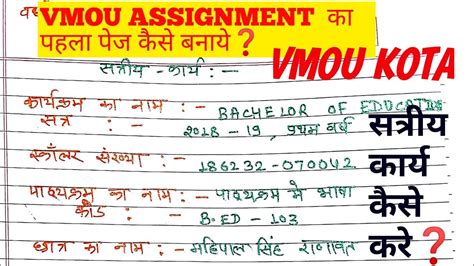 VMOU ASSIGNMENT का
पहला पेज कैसे बनाये?
VMOU KOTA
सत्रीय-कार्य :-
कार्यक्रम का नाम :- BACHELOR OF EDUCATION
सत्र :- 2018-19, प्रथम वर्ष
स्कॉलर संख्या :- 186232-070042
पाठ्यक्रम का नाम :- पाठ्यक्रम मे भाषा
कोड :- B.ED-103
छात्र का नाम :- महिपाल सिंह राणावत
सत्रीय
कार्य
कैसे
करे?